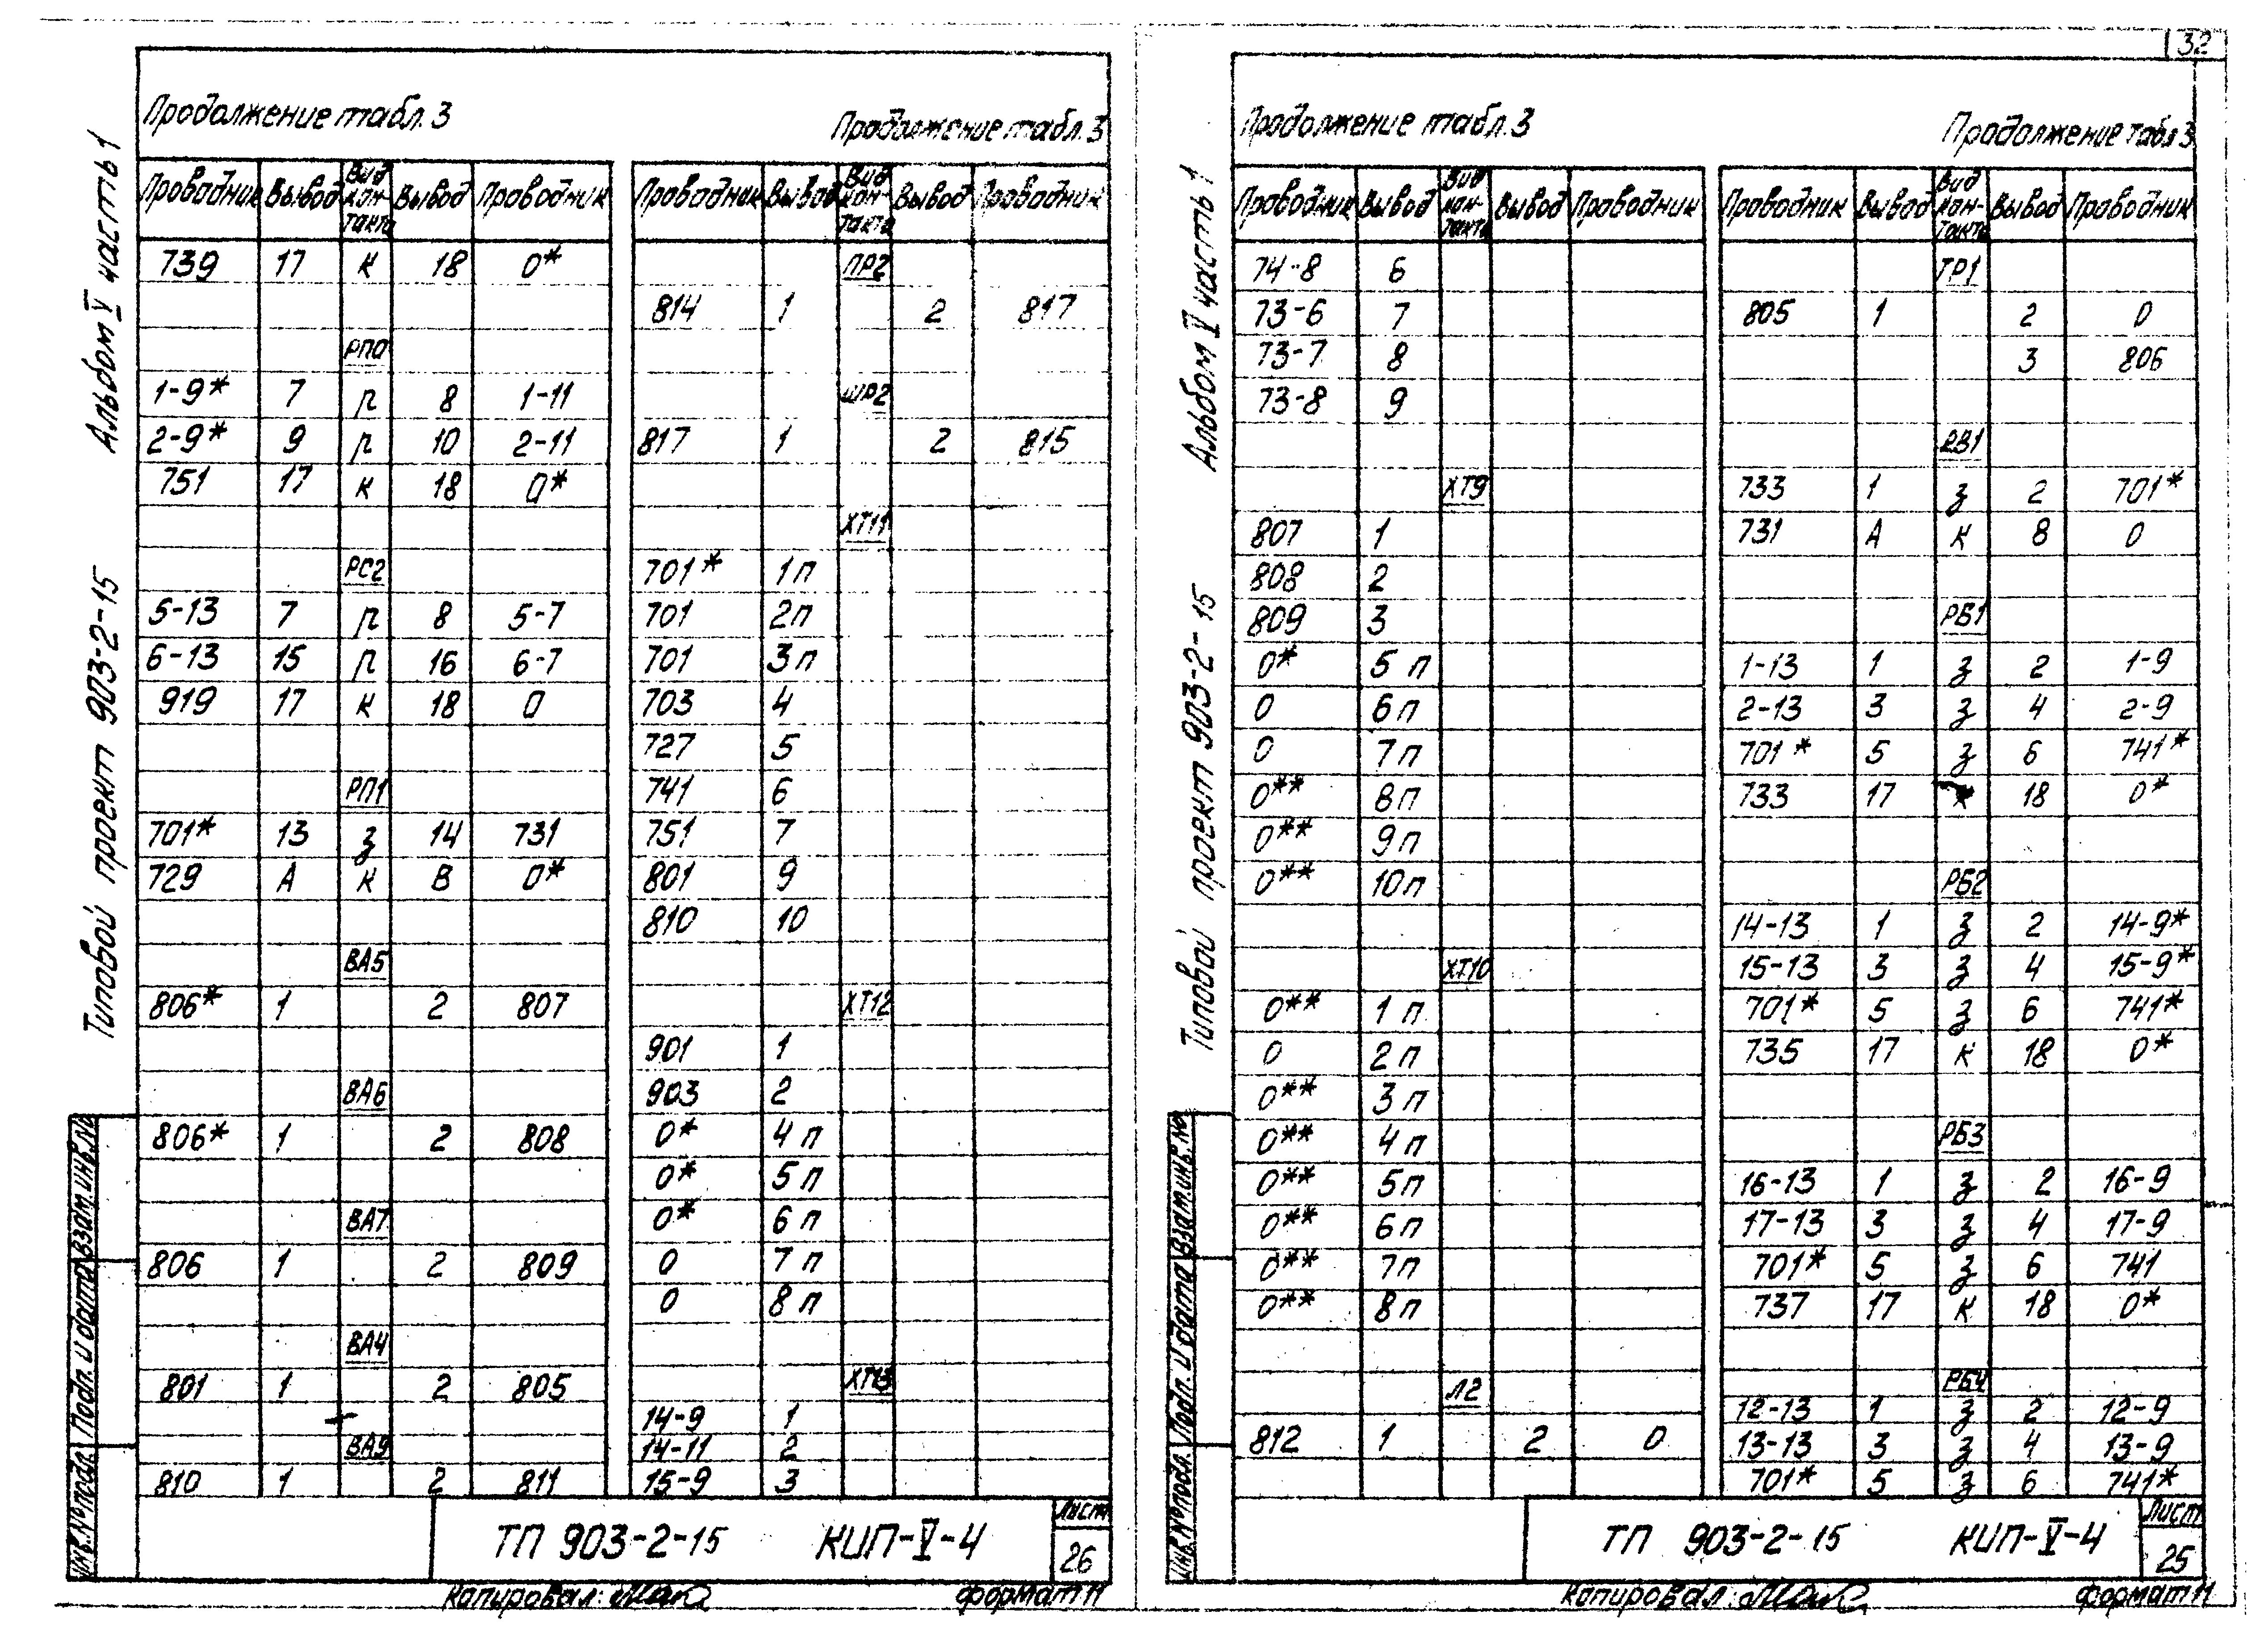 32
Альбом V часть 1
Типовой проект 903-2-15
Продолжение табл. 3
Проводник Вывод Вид контакта Вывод Проводник
739 17 к 18 0*
РП0
1-9* 7 р 8 1-11
2-9* 9 р 10 2-11
751 17 к 18 0*
РС2
5-13 7 р 8 5-7
6-13 15 р 16 6-7
919 17 к 18 0
РП1
701* 13 з 14 731
729 А к В 0*
ВА5
806* 1 2 807
ВА6
806* 1 2 808
ВА7
806 1 2 809
ВА4
801 1 2 805
ВА9
810 1 2 811
Продолжение табл. 3
Проводник Вывод Вид контакта Вывод Проводник
ПР2
814 1 2 817
ШР2
817 1 2 815
ХТ11
701* 1п
701 2п
701 3п
703 4
727 5
741 6
751 7
801 9
810 10
ХТ12
901 1
903 2
0* 4п
0* 5п
0* 6п
0 7п
0 8п
ХТ13
14-9 1
14-11 2
15-9 3
Инв.№ подл. Подп. и дата Взам.инв.№
ТП 903-2-15 КИП-V-4
Лист
26
Копировал:
Формат 11
Альбом V часть 1
Типовой проект 903-2-15
Продолжение табл. 3
Проводник Вывод Вид контакта Вывод Проводник
74-8 6
73-6 7
73-7 8
73-8 9
ХТ9
807 1
808 2
809 3
0* 5п
0 6п
0 7п
0** 8п
0** 9п
0** 10п
ХТ10
0** 1п
0 2п
0** 3п
0** 4п
0** 5п
0** 6п
0** 7п
0** 8п
Л2
812 1 2 0
Продолжение табл 3
Проводник Вывод Вид контакта Вывод Проводник
ТР1
805 1 2 0
3 806
РВ1
733 1 з 2 701*
731 А к 8 0
РБ1
1-13 1 з 2 1-9
2-13 3 з 4 2-9
701* 5 з 6 741*
733 17 к 18 0*
РБ2
14-13 1 з 2 14-9*
15-13 3 з 4 15-9*
701* 5 з 6 741*
735 17 к 18 0*
РБ3
16-13 1 з 2 16-9
17-13 3 з 4 17-9
701* 5 з 6 741
737 17 к 18 0*
РБ4
12-13 1 з 2 12-9
13-13 3 з 4 13-9
701* 5 з 6 741*
Инв.№ подл. Подп. и дата Взам.инв.№
ТП 903-2-15 КИП-V-4
Лист
25
Копировал:
Формат 11